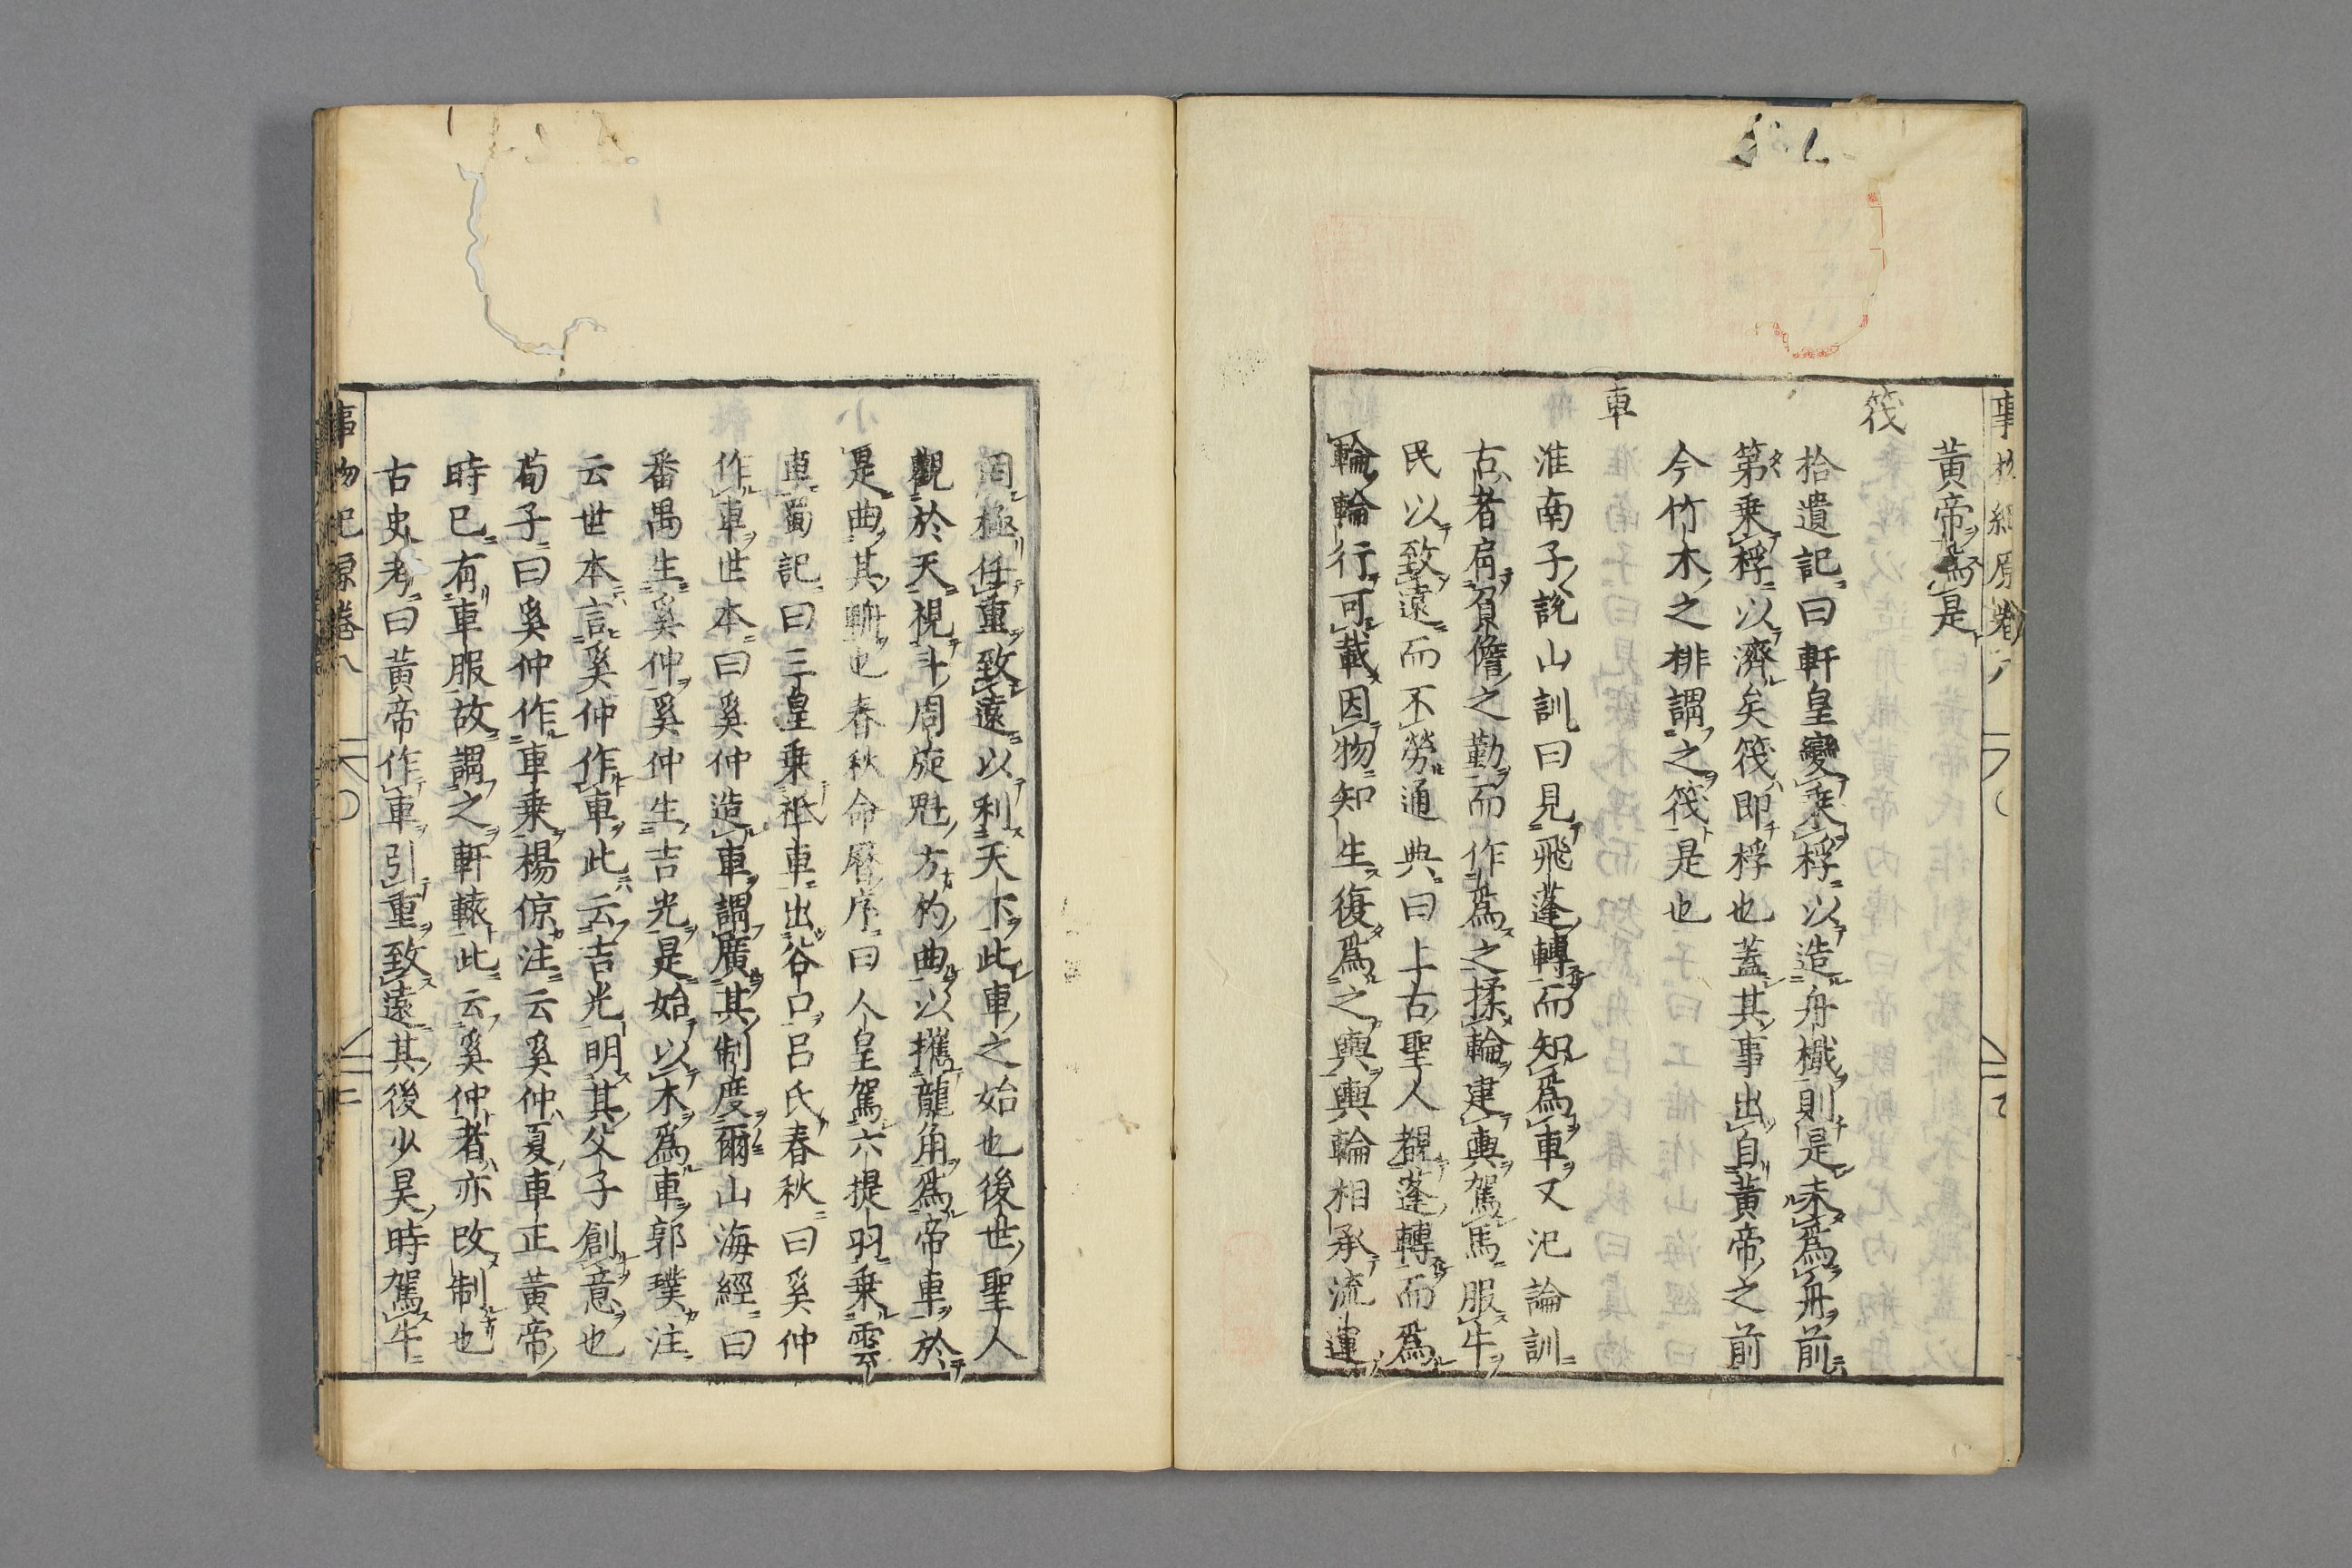 黃帝爲是
筏
拾遺記曰軒皇變乘桴以造舟檝則是未爲舟前
第乗桴以濟矣筏即桴也蓋其事出自黃帝之前
今竹木之排謂之筏是也
車
淮南子說山訓曰見飛蓬轉而知爲車又氾論訓
古者肩負儋之勤而作爲之揉輪建輿駕馬服牛
民以致遠而不勞通典曰上古聖人覩蓬轉而爲
輪輪行可載因物知生復爲之輿輿輪相承流運
罔極任重致遠以利天下此車之始也後世聖人
觀於天視斗周旋魁方杓曲以攜龍角爲帝車於
是曲其輈也春秋命曆序曰人皇駕六提羽乗雲
車蜀記曰三皇乗祗車出谷口呂氏春秋曰奚仲
作車世本曰奚仲造車謂廣其制度爾山海經曰
番禺生奚仲奚仲生吉光是始以木爲車郭璞注
云世本言奚仲作車此云吉光明其父子創意也
荀子曰奚仲作車乗楊倞注云奚仲夏車正黃帝
時已有車服故謂之軒轅此云奚仲者亦改制也
古史考曰黃帝作車引重致遠其後少昊時駕牛
事物紀原卷八